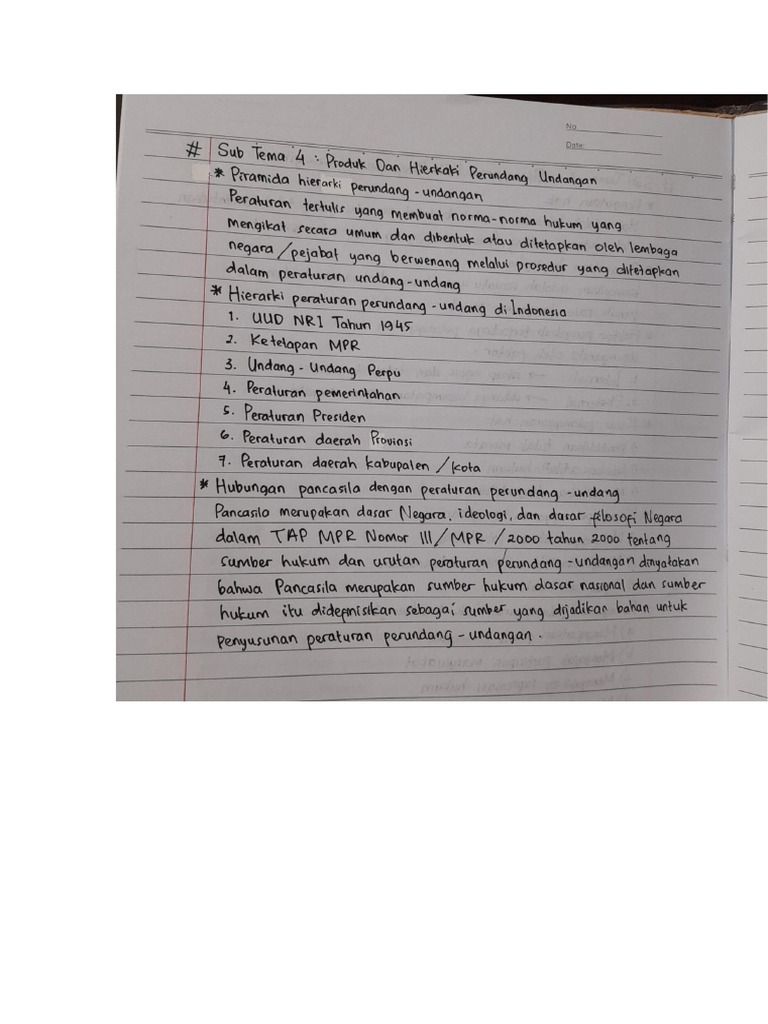 No
Date:
# Sub Tema 4 : Produk Dan Hierkaki Perundang Undangan
* Piramida hierarki perundang-undangan
Peraturan tertulis yang membuat norma-norma hukum yang
mengikat secara umum dan dibentuk atau ditetapkan oleh lembaga
negara/pejabat yang berwenang melalui prosedur yang ditetapkan
dalam peraturan undang-undang
* Hierarki peraturan perundang-undang di Indonesia
1. UUD NRI Tahun 1945
2. Ketetapan MPR
3. Undang-Undang Perpu
4. Peraturan pemerintahan
5. Peraturan Presiden
6. Peraturan daerah Provinsi
7. Peraturan daerah kabupaten/kota
* Hubungan pancasila dengan peraturan perundang-undang
Pancasila merupakan dasar Negara, ideologi, dan dasar filosofi Negara
dalam TAP MPR Nomor III/MPR/2000 tahun 2000 tentang
sumber hukum dan urutan peraturan perundang-undangan dinyatakan
bahwa Pancasila merupakan sumber hukum dasar nasional dan sumber
hukum itu didepinisikan sebagai sumber yang dijadikan bahan untuk
penyusunan peraturan perundang-undangan.